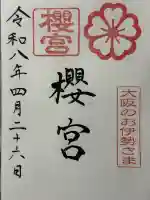 櫻宮
櫻宮
大阪のお伊勢さま
令和八年四月二十六日